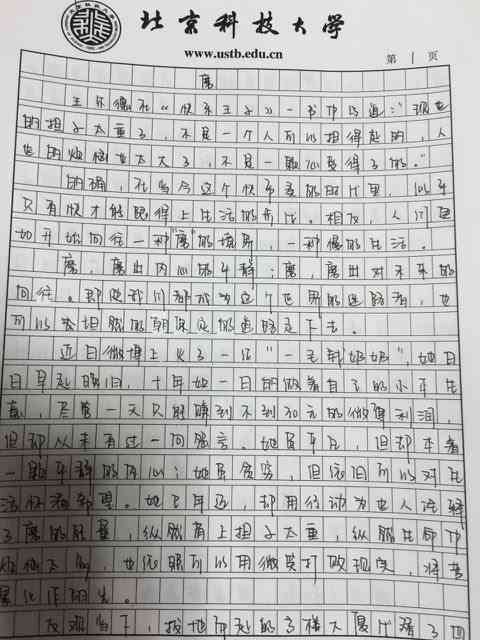 北京科技大学
www.ustb.edu.cn
第 1 页
磨
王尔德在《快乐王子》一书中写道："现世
的担子太重了，不是一个人可以担得起的，人
世的烦恼也太大了，不是一颗心受得了的。"
的确，在当今这个快节奏的时代里，似乎
只有快才能跟得上生活的步伐。相反，人们更
如开始向往一种"磨"的境界，一种慢的生活。
磨，磨出内心的平静；磨，磨出对未来的
向往。即使我们都成为这个世界的迷路者，也
可以坦然的朝既定的道路走下去。
近日微博上火了一位"一毛钱奶奶"，她日
日早起晚归，十年如一日的做着自己的小本生
意，尽管一天只能赚到不到30元的微薄利润，
但却从未有过一句怨言。她虽平凡，但却本着
一颗平静的内心；她虽贫穷，但依旧可以对生
活怀着希望。她已年迈，却用行动为世人诠释
了磨的能量，纵然肩上担子太重，纵然生命中
烦恼太多，也依照可以用微笑打败现实，将苦
累化作明光。
反观当下，拔地而起的高楼大厦代替了